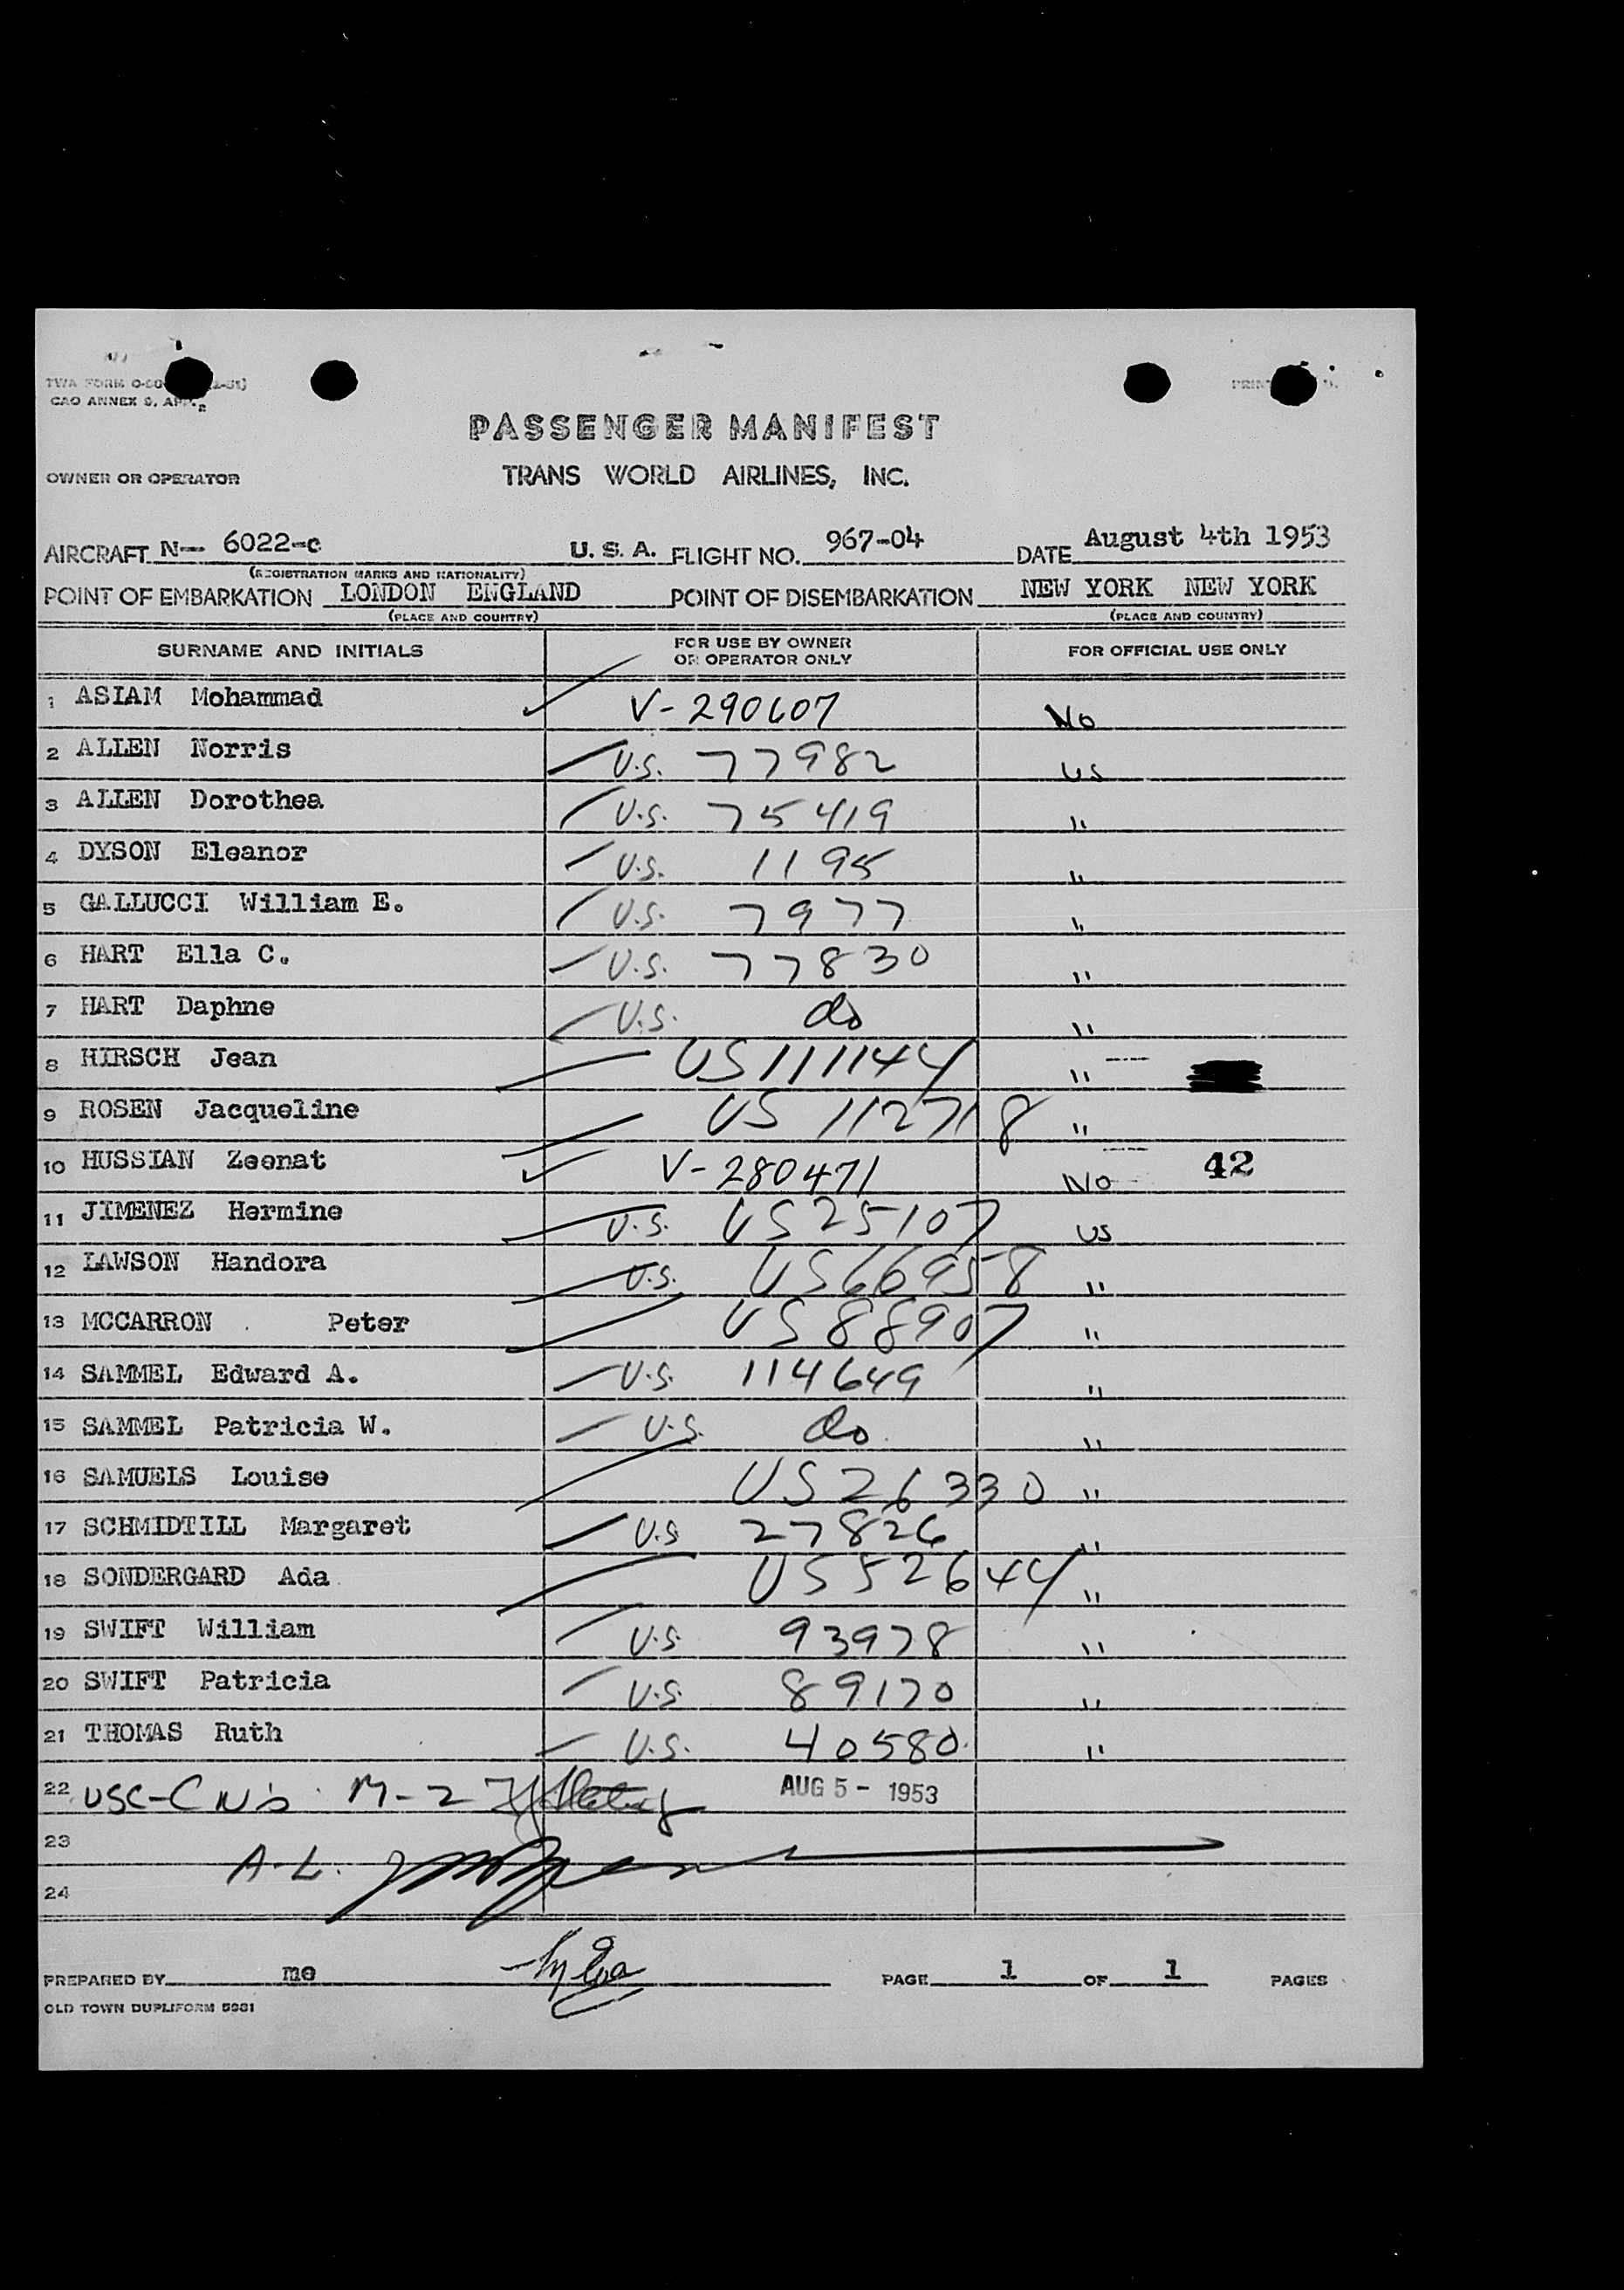 TWA FORM 0-60
CAO ANNEX 9, APP. 2
PASSENGER MANIFEST
OWNER OR OPERATOR TRANS WORLD AIRLINES, INC.
AIRCRAFT N-- 6022-c U. S. A. FLIGHT NO. 967-04 DATE August 4th 1953
(REGISTRATION MARKS AND NATIONALITY)
POINT OF EMBARKATION LONDON ENGLAND POINT OF DISEMBARKATION NEW YORK NEW YORK
(PLACE AND COUNTRY) (PLACE AND COUNTRY)
SURNAME AND INITIALS FOR USE BY OWNER OR OPERATOR ONLY FOR OFFICIAL USE ONLY
1 ASIAM Mohammad V-290607 No
2 ALLEN Norris U.S. 77982 US
3 ALLEN Dorothea U.S. 75419 "
4 DYSON Eleanor U.S. 1195 "
5 GALLUCCI William E. U.S. 7977 "
6 HART Ella C. U.S. 77830 "
7 HART Daphne U.S. do "
8 HIRSCH Jean US 111144 "
9 ROSEN Jacqueline US 112718 "
10 HUSSIAN Zeenat V-280471 No 42
11 JIMENEZ Hermine U.S. US25107 US
12 LAWSON Handora U.S. US66958 "
13 MCCARRON Peter US88907 "
14 SAMMEL Edward A. U.S. 114649 "
15 SAMMEL Patricia W. U.S. do "
16 SAMUELS Louise US26330 "
17 SCHMIDTILL Margaret U.S 27826 "
18 SONDERGARD Ada US52644 "
19 SWIFT William U.S 93978 "
20 SWIFT Patricia U.S. 89170 "
21 THOMAS Ruth U.S. 40580 "
22 USC-C M-2 AUG 5 - 1953
23
A.L.
24
PREPARED BY me PAGE 1 OF 1 PAGES
OLD TOWN DUPLIFORM 5981